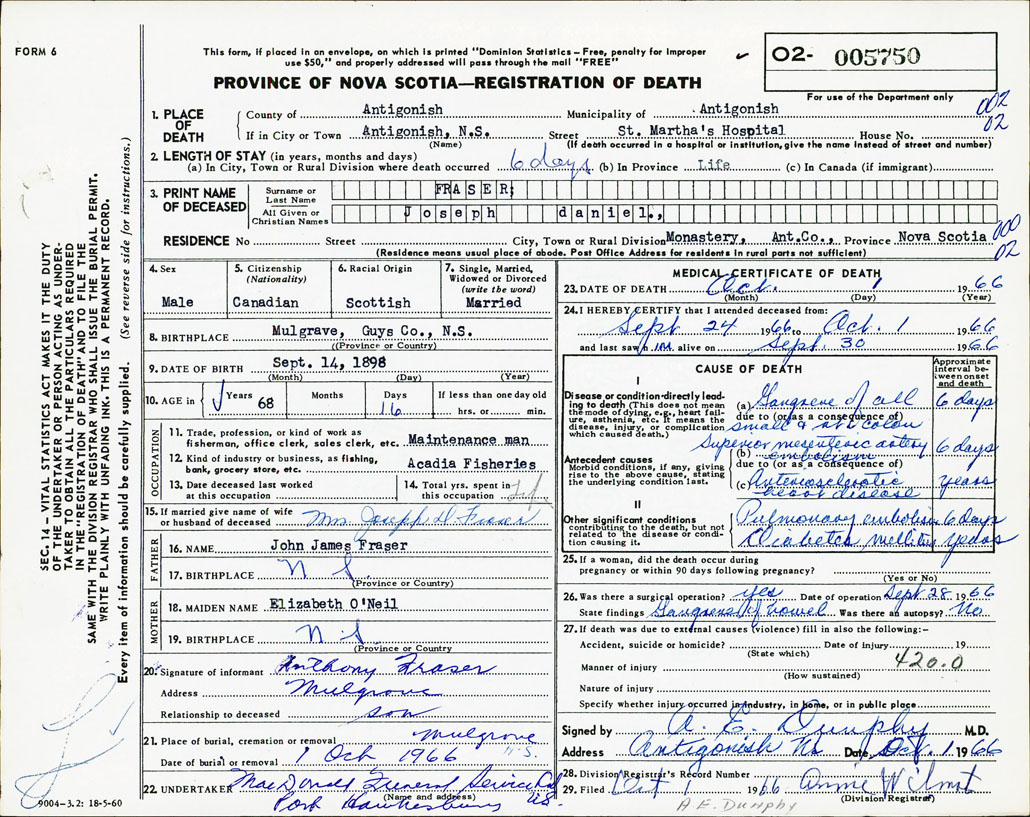 FORM 6
This form, if placed in an envelope, on which is printed "Dominion Statistics – Free, penalty for improper
use $50," and properly addressed will pass through the mail "FREE"
PROVINCE OF NOVA SCOTIA—REGISTRATION OF DEATH
O2- 005750
For use of the Department only
002
02
1. PLACE OF DEATH
County of Antigonish Municipality of Antigonish
If in City or Town Antigonish, N.S. Street St. Martha's Hospital House No.
(Name) (If death occurred in a hospital or institution, give the name instead of street and number)
2. LENGTH OF STAY (in years, months and days)
(a) In City, Town or Rural Division where death occurred 6 days (b) In Province Life (c) In Canada (if immigrant)
3. PRINT NAME OF DECEASED
Surname or Last Name FRASER,
All Given or Christian Names Joseph daniel.,
RESIDENCE No Street City, Town or Rural Division Monastery, Ant.Co., Province Nova Scotia
000
02
(Residence means usual place of abode. Post Office Address for residents in rural parts not sufficient)
4. Sex
Male
5. Citizenship (Nationality)
Canadian
6. Racial Origin
Scottish
7. Single, Married, Widowed or Divorced (write the word)
Married
8. BIRTHPLACE Mulgrave, Guys Co., N.S.
(Province or Country)
9. DATE OF BIRTH Sept. 14, 1898
(Month) (Day) (Year)
10. AGE in Years 68 Months Days 16 If less than one day old
hrs. or min.
OCCUPATION
11. Trade, profession, or kind of work as
fishermen, office clerk, sales clerk, etc. Maintenance man
12. Kind of industry or business, as fishing,
bank, grocery store, etc. Acadia Fisheries
13. Date deceased last worked
at this occupation
14. Total yrs. spent in
this occupation
15. If married give name of wife
or husband of deceased Mrs. Joseph D Fraser
FATHER
16. NAME John James Fraser
17. BIRTHPLACE N S
(Province or Country)
MOTHER
18. MAIDEN NAME Elizabeth O'Neil
19. BIRTHPLACE N S
(Province or Country)
20. Signature of informant Anthony Fraser
Address Mulgrove
Relationship to deceased son
21. Place of burial, cremation or removal Mulgrove N.S.
Date of burial or removal 1 Oct 1966
22. UNDERTAKER MacDonald Funeral Service
(Name and address)
Port Hawkesbury NS.
9004–3.2: 18-5-60
MEDICAL CERTIFICATE OF DEATH
23. DATE OF DEATH Oct. 1 1966
(Month) (Day) (Year)
24. I HEREBY CERTIFY that I attended deceased from:
Sept 24 1966 to Oct. 1 1966
and last saw him alive on Sept. 30 1966
CAUSE OF DEATH
Approximate interval between onset and death
I
Disease or condition directly leading to death (This does not mean the mode of dying, e.g., heart failure, asthenia, etc. It means the disease, injury, or complication which caused death.)
(a) Gangrene of all 6 days
due to (or as a consequence of)
small & colon
Superior mesenteric artery 6 days
(b) embolism
due to (or as a consequence of)
Antecedent causes
Morbid conditions, if any, giving rise to the above cause, stating the underlying condition last.
(c) Arteriosclerotic years
heart disease
II
Other significant conditions contributing to the death, but not related to the disease or condition causing it.
Pulmonary embolism 6 days
Diabetes mellitus years
25. If a woman, did the death occur during
pregnancy or within 90 days following pregnancy?
(Yes or No)
26. Was there a surgical operation? yes Date of operation Sept 28 1966
State findings Gangrene of bowel Was there an autopsy? No
27. If death was due to external causes (violence) fill in also the following:–
Accident, suicide or homicide? Date of injury 19
(State which)
420.0
Manner of injury
(How sustained)
Nature of injury
Specify whether injury occurred in industry, in home, or in public place
Signed by A. E. Dunphy M.D.
Address Antigonish NS Date Oct. 1 1966
28. Division Registrar's Record Number
29. Filed Oct 1 1966 Annie Wilmot
(Division Registrar)
A.E. Dunphy
SEC. 14 – VITAL STATISTICS ACT MAKES IT THE DUTY
OF THE UNDERTAKER OR PERSON ACTING AS UNDER-
TAKER TO OBTAIN ALL THE PARTICULARS REQUIRED
IN THE "REGISTRATION OF DEATH" AND TO FILE THE
SAME WITH THE DIVISION REGISTRAR WHO SHALL ISSUE THE BURIAL PERMIT.
WRITE PLAINLY WITH UNFADING INK. THIS IS A PERMANENT RECORD.
Every item of information should be carefully supplied. (See reverse side for instructions.)